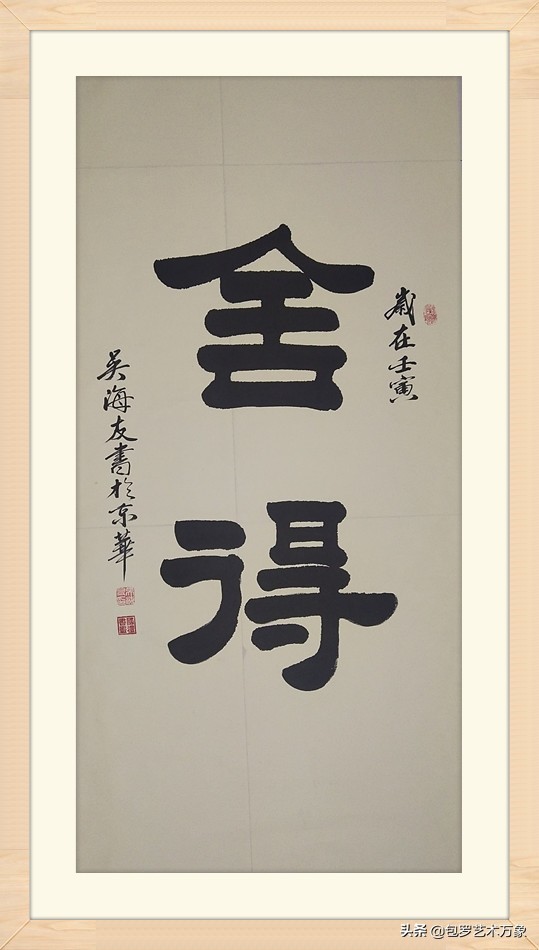 歲在壬寅
舍得
吴海友書於东華
头条 @包罗艺术万象